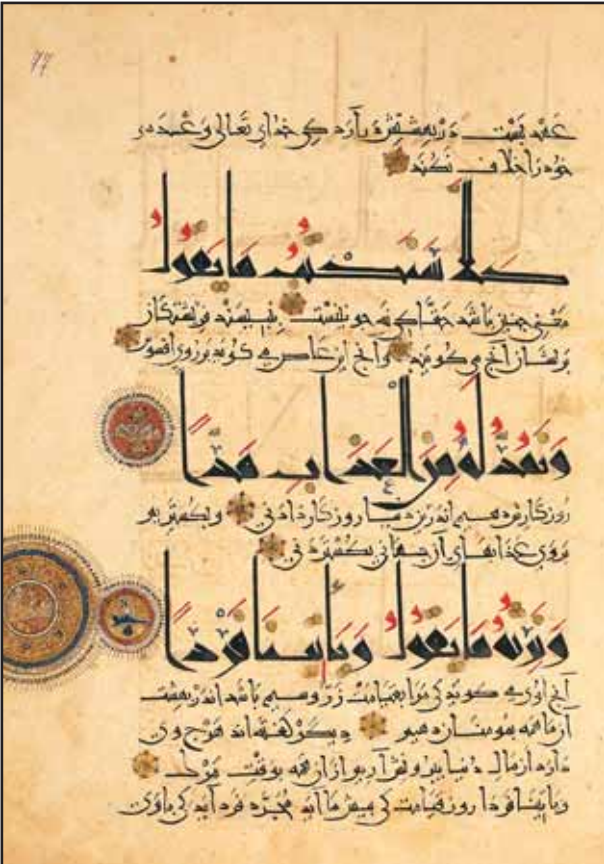 77
عهد بست در بهشتش در آرد کی خدای تعالی وعده
خود را خلاف نکند
كَلَّا سَنَكْتُبُ مَا يَقُولُ
معنی چنین باشد حقا کی نه چونینست بنبیسند فریشتکان
آنج می کوید وانج این عاص می کوید بر روی افسوس
وَنَمُدُّ لَهُ مِنَ الْعَذَابِ مَدًّا
روزکارش دهیم اندرین دنیا روزکار دادنی وبکستریم
بروی عذابهای آن جهانی بکستردنی
وَنَرِثُهُ مَا يَقُولُ وَيَأْتِينَا فَرْدًا
آنج اوی می کوید کی مرا بقیامت زر وسیم باشد اندر بهشت
آن همه بمومنان دهیم دیکر کفته اند هرج وی
دارد از مال دنیا بیرونش آریم از آن همه بوقت مرک
ویاتینا فردا روز قیامت کی پیش ما آید مجرد فرد آید کی باوی